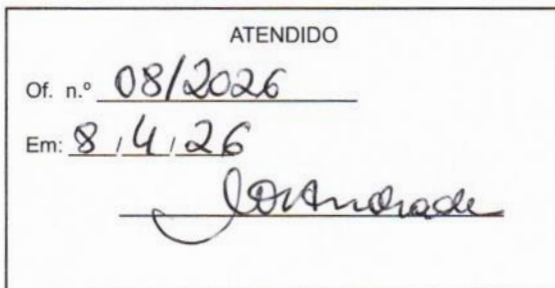 ATENDIDO
Of. n.º 08/2026
Em: 8/4/26